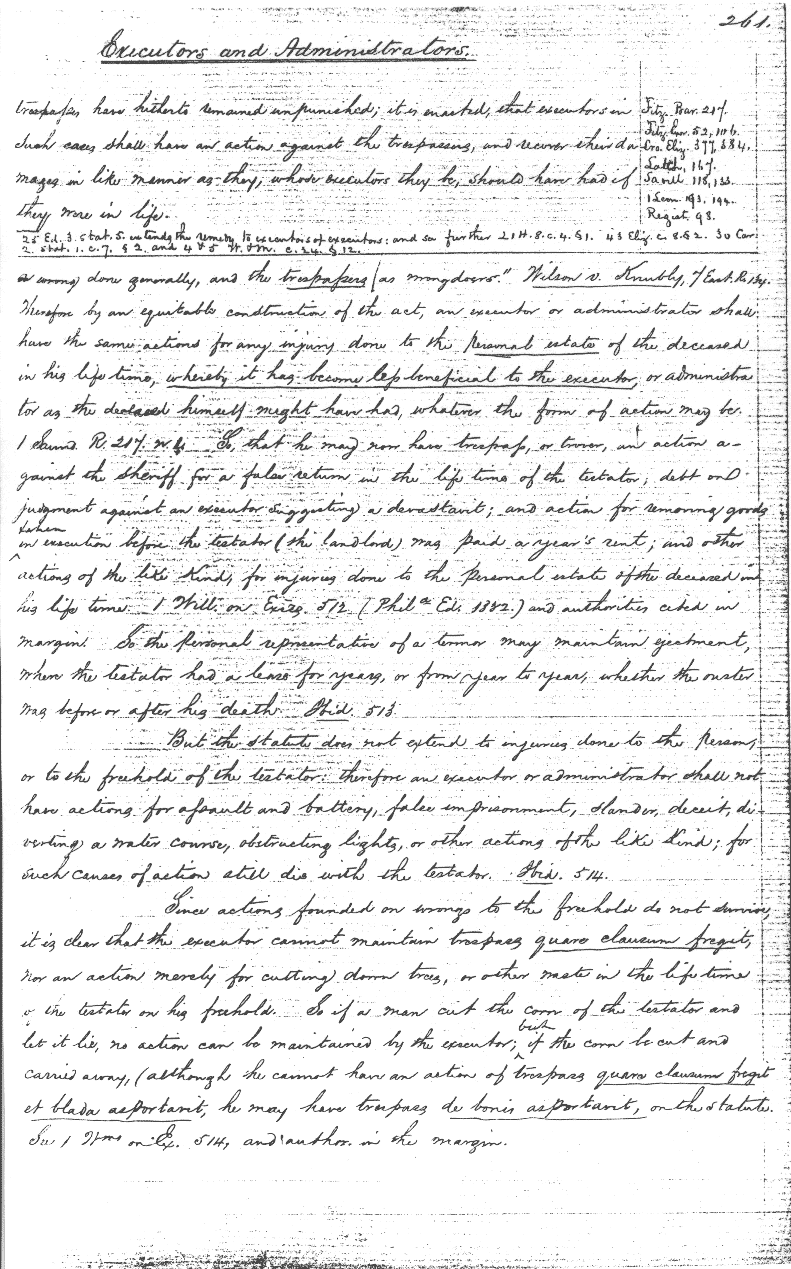 261.
Executors and Administrators.
trespasses have hitherto remained unpunished; it is enacted, that executors in
such cases shall have an action against the trespassers, and recover their da-
mages in like manner as they, whose executors they be, should have had if
they were in life.
Fitz. Bar. 217.
Fitz. Exor. 52, 106.
Cro. Eliz. 377, 384.
Latch, 167.
Savill 118, 133.
1 Leon. 193. 194.
Regist. 98.
25 Ed. 3. Stat. 5. extends the remedy to executors of executors: and see further 21 H. 8. c. 4. § 1. 43 Eliz. c. 8. § 2. 30 Car.
2. Stat. 1. c. 7. § 2. and 4 & 5 W. & M. c. 24. § 12.
a wrong done generally, and the trespassers (as wrongdoers." Wilson v. Knubly, 7 East. R. 134.
Therefore by an equitable construction of the act, an executor or administrator shall
have the same actions for any injury done to the personal estate of the deceased
in his life time, whereby it has become less beneficial to the executor, or administra
tor as the deceased himself might have had, whatever the form of action may be.
1 Saund. R. 217. n. So, that he may now have trespass, or trover, an action a-
gainst the sheriff for a false return in the life time of the testator; debt on a
judgment against an executor suggesting a devastavit; and action for removing goods
taken
in execution before the testator (the landlord) was paid a year's rent; and other
actions of the like kind, for injuries done to the personal estate of the deceased in
his life time. 1 Will. on Exrs. 512 (Phila Ed. 1832.) and authorities cited in
margin. So the personal representative of a termor may maintain ejectment,
where the testator had a lease for years, or from year to year, whether the ouster
was before or after his death. Ibid. 513.
But the statute does not extend to injuries done to the person,
or to the freehold of the testator: therefore an executor or administrator shall not
have actions for assault and battery, false imprisonment, slander, deceit, di-
verting a water course, obstructing lights, or other actions of the like kind; for
such causes of action still die with the testator. Ibid. 514.
Since actions founded on wrongs to the freehold do not survive,
it is clear that the executor cannot maintain trespass quare clausum fregit,
nor an action merely for cutting down trees, or other waste in the life time
of the testator on his freehold. So if a man cut the corn of the testator and
let it lie, no action can be maintained by the executor; but if the corn be cut and
carried away, (although he cannot have an action of trespass quare clausum fregit
et blada asportavit, he may have trespass de bonis asportavit, on the statute.
See 1 Wms on Ex. 514, and author. in the margin.